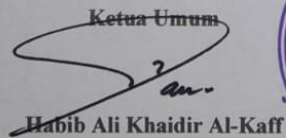 Ketua Umum
Habib Ali Khaidir Al-Kaff